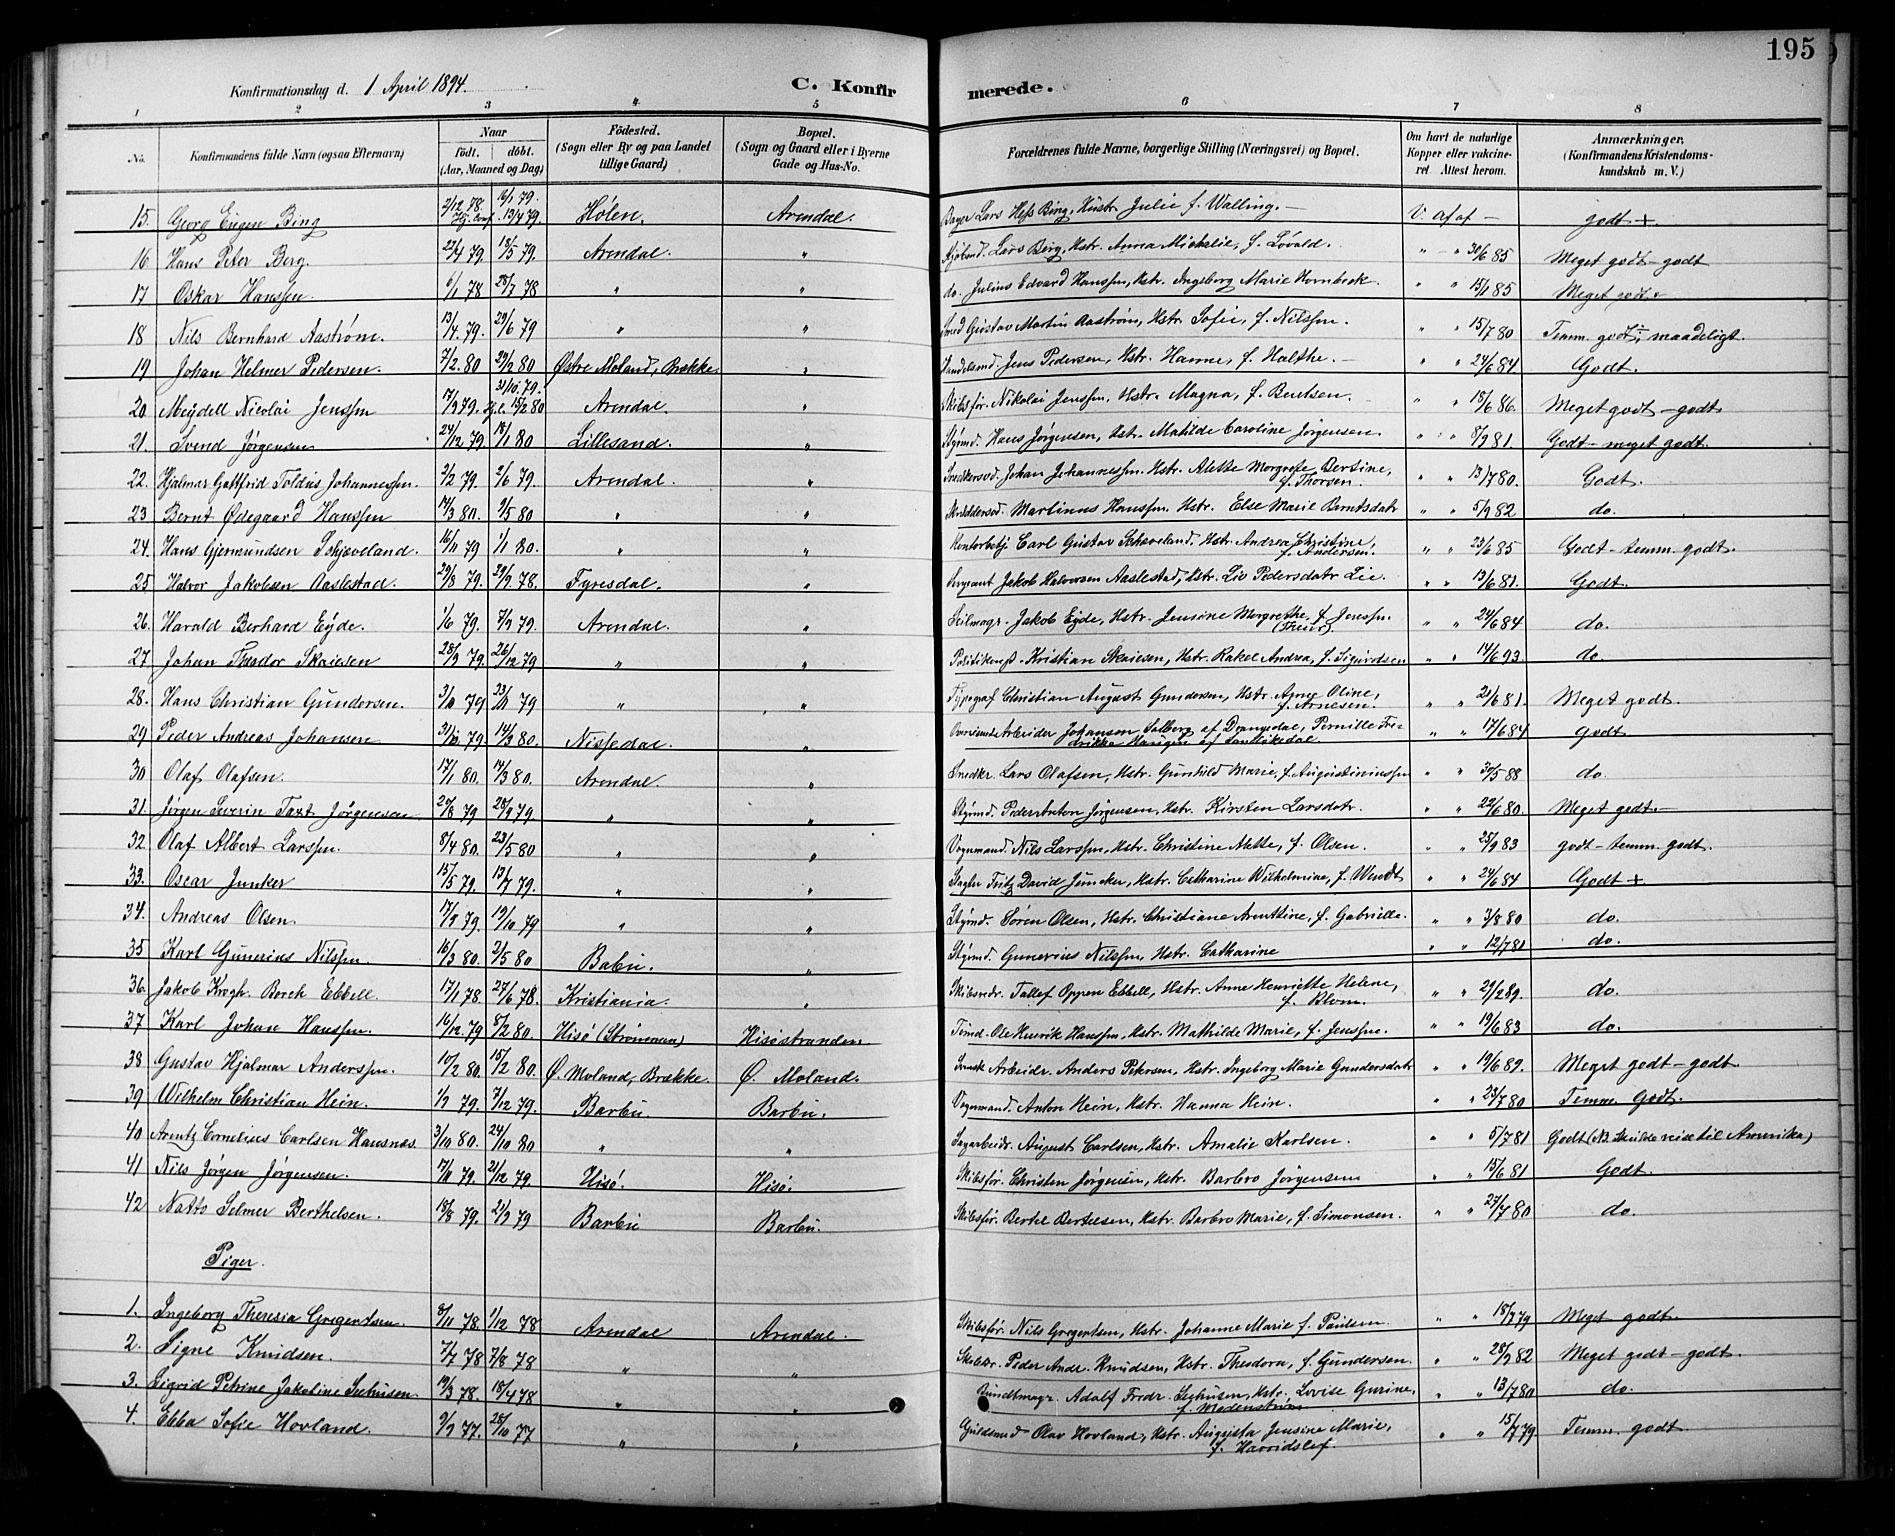 195
Konfirmationsdag d. 1 April 1894. C. Konfirmerede.
1 2 3 4 5 6 7 8
No. Konfirmandens fulde Navn (ogsaa Efternavn) Naar født. døbt. (Aar, Maaned og Dag) Fødested. (Sogn eller By og paa Landet tillige Gaard) Bopæl. (Sogn og Gaard eller i Byerne Gade og Hus-No. Forældrenes fulde Navne, borgerlige Stilling (Næringsvei) og Bopæl. Om havt de naturlige Kopper eller vakcineret Attest herom. Anmærkninger, (Konfirmandens Kristendomskundskab m. V.)
15. Georg Eugen Bing 2/12 78. 6/1 79. Hj. Conf. 13/4 79. Hølen. Arendal. Bager Lars Hess Bing, Hustr. Julie f. Walling. — V. af af — godt +
16 Hans Peter Berg. 22/4 79 18/5 79. Arendal. " Kjøbmd. Lars Berg, Hstr. Anna Michalie, f. Løvald. " " 30/6 85 Meget godt - godt
17 Oskar Hanssen. 6/1 78 28/7 78 " " do. Julius Edvard Hanssen, Hstr. Ingeborg Marie Hornbeck. " " 15/1 85 Meget godt.
18 Nils Bernhard Aastrøm. 13/4 79. 29/6 79 " " Smed Gustav Martin Aastrøm, Hstr. Sofie, f. Nilssen. " " 15/7 80 Temm. godt, maadeligt.
19 Johan Helmer Pedersen. 7/2 80 29/2 80 Østre Moland, Brække. " Handelsmd. Jens Pedersen, Hstr. Hanne, f. Holthe. — " " 24/6 84 Godt.
20. Meydell Nicolai Jenssen 17/9 79. 31/10 79. Hj. C. 15/2 80 Arendal. " Skibsfør. Nikolai Jenssen, Hstr. Magna, f. Bentsen. " " 18/6 86. Meget godt - godt
21. Svend Jørgensen 24/12 79. 18/1 80 Lillesand. " Stymd. Hans Jørgensen, Hstr. Matilde Caroline Jørgensen. " " 8/9 81. Godt - meget godt.
22. Hjalmar Gottfrid Foldus Johannessen. 2/2 79. 2/6 79. Arendal. " Snedkersvd. Johan Johannessen. Hstr. Alette Margrete Bertine, f. Thorsen. " " 13/7 80. Godt.
23 Bernt Ødegaard Hanssen 14/3 80. 9/5 80 " " Skræddersvd. Martinus Hanssen. Hstr. Else Marie Berntsdatr " " 5/9 82 do.
24. Hans Gjermundsen Schjæveland. 16/11 79 1/1 80. " " Kontorbetj. Carl Gustav Schæveland. Hstr. Andrea Christine, f. Andersen. " " 23/6 85 Godt - temm. godt.
25. Halvor Jakobsen Aaslestad. 29/8 79. 29/9 78. Fyresdal. " Sergeant Jakob Halvorsen Aaslestad, Hstr. Liv Pedersdatr Lie. " " 13/6 81. Godt.
26. Harald Berhard Eyde. 1/6 79. 7/9 79. Arendal. " Seilmagr. Jakob Eyde, Hstr. Jensine Margrethe, f. Jenssen. " " 24/6 84 do.
27. Johan Teodor Skaiesen 28/9 79. 26/12 79 " " Politikonst. Kristian Skaiesen, Hstr. Rakel Andrea, f. Sigurdsen " " 14/6 93. do.
28. Hans Christian Gundersen. 3/10 79 23/11 79 " " Typograf Christian August Gundersen, Hstr. Anne Oline, f. Arnesen. " " 21/6 81. Meget godt.
29 Peder Andreas Johansen 31/10 79. 14/3 80. Nissedal. " Arbeider Johansen Solberg af Drangedal, Pernille Fredrikke Haugen af Sandikedal. " " 17/6 84 godt
30 Olaf Olafsen. 17/1 80. 14/3 80. Arendal. " Snedkr. Lars Olafsen, Hstr. Gunhild Marie, f. Augustiniussen " " 30/5 88 do.
31. Jørgen Severin Taxt Jørgensen 20/8 79 28/9 79. " " Stymd. Peder Anton Jørgensen, Hstr. Kirsten Larsdatr. " " 22/6 80. Meget godt. —
32 Olaf Albert Larssen. 8/4 80. 23/5 80 " " Vognmand. Nils Larssen, Hstr. Christine Alette, f. Olsen. " " 25/9 83 godt - temm. godt.
33. Oscar Junker 15/5 79. 13/7 79. " " Fritz David Juncker, Hstr. Catharine Wilhelmine, f. Wendt " " 24/6 84 Godt +
34. Andreas Olsen. 17/9 79. 19/10 79 " " Stymd. Søren Olsen, Hstr. Christiane Arenttine, f. Gabrielle. " " 3/8 80 do.
35 Karl Gunerius Nilssen. 16/3 80. 2/5 80 Babu. " Stymd. Gunerius Nilssen, Hstr. Catharine " " 12/7 81 do.
36. Jakob Krogh. Borch Ebbell. 17/1 78. 27/6 78. Kristiania. " Skibsredr. Tallef Oppen Ebbell, Hstr. Anne Henriette Helene, f. Blom. " " 29/2 89. do.
37 Karl Johan Hanssen. 16/12 79 8/2 80. Hisø (Strømmen) Hisøstranden Tømd. Ole Henrik Hanssen, Hstr. Mathilde Marie, f. Jenssen. " " 19/6 83 do.
38 Gustav Hjalmar Anderssen. 10/2 80. 15/2 80. Ø. Moland, Brække. Ø. Moland. Svensk Arbeidr. Anders Petersen, Hstr. Ingeborg Marie Gundersdatr " " 19/6 89. Meget godt - godt
39 Wilhelm Christian Hein. 1/9 79. 7/12 79. Barbu. Barbu. Vognmand. Anton Hein, Hstr. Hanna Hein. " " 23/7 80 Temm. Godt.
40 Arentz Cornelius Carlsen Hausnæs. 3/10 80. 24/10 80 " " Sagarbeidr. August Carlsen, Hstr. Amalie Karlsen. " " 5/7 81 Godt (NB. Skulde reise til Amerika)
41 Nils Jørgen Jørgensen. 17/11 79. 21/12 79 Hisø. Hisø. Skibsfør. Christen Jørgensen, Hstr. Barbro Jørgensen " " 15/6 81 Godt.
42 Natto Selmer Berthelsen. 18/8 79. 21/9 79 Barbu Barbu. Skibsfør. Bertel Bertelsen, Hstr. Barbro Marie, f. Simonsen. " " 27/7 80 do.
Piger.
1. Ingeborg Theresia Gregertsen. 8/11 78. 1/12 78 Arendal Arendal. Skibsfør. Nils Gregertsen, Hstr. Johanne Marie f. Paulsen " " 18/7 79 Meget godt.
2. Signe Knudsen. 7/7 78 7/8 78 " " Peder Andr. Knudsen, Hstr. Theodora, f. Gundersen. " " 28/9 82 Meget godt - godt.
3. Sigrid Petrine Jakoline Seehusen 19/3 78. 18/4 78 " " Bundtmagr. Adolf Fredr. Seehusen, Hstr. Lovise Gurine, f. Modenstrøm " " 13/7 80 do.
4. Ebba Sofie Hovland. 9/9 77. 28/10 77 " " Guldsmed Olav Hovland, Hstr. Augusta Jensine Marie, f. Harridslef. " " 15/7 79 Temm. godt